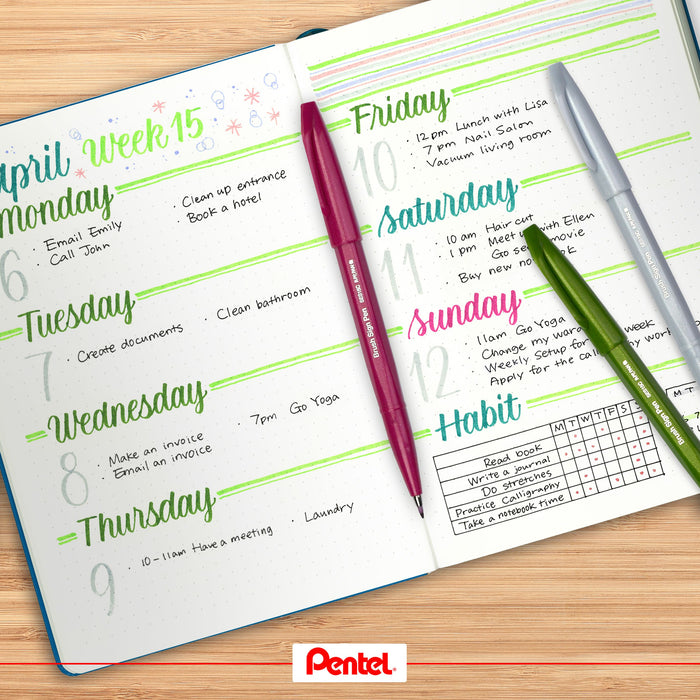 April Week 15
Monday
6
· Email Emily
Call John
· Clean up entrance
Book a hotel
Tuesday
7
· Create documents
· Clean bathroom
Wednesday
8
· Make an invoice
· Email an invoice
· 7pm Go Yoga
Thursday
9
· 10-11am Have a meeting
· Laundry
Friday
10
12pm Lunch with Lisa
· 7pm Nail Salon
· Vacuum living room
Saturday
11
· 10am Hair cut
· 1pm Meet with Ellen
Go movie
Buy new
Sunday
12
11am Go Yoga
· Change my week
Weekly Setup for
Apply for the
Habit
M T W T F S S
Read book
Write a journal
Do stretches
Practice Calligraphy
Take a notebook time
M T
Brush Sign Pen
Brush Sign Pen
Brush Sign Pen
Pentel